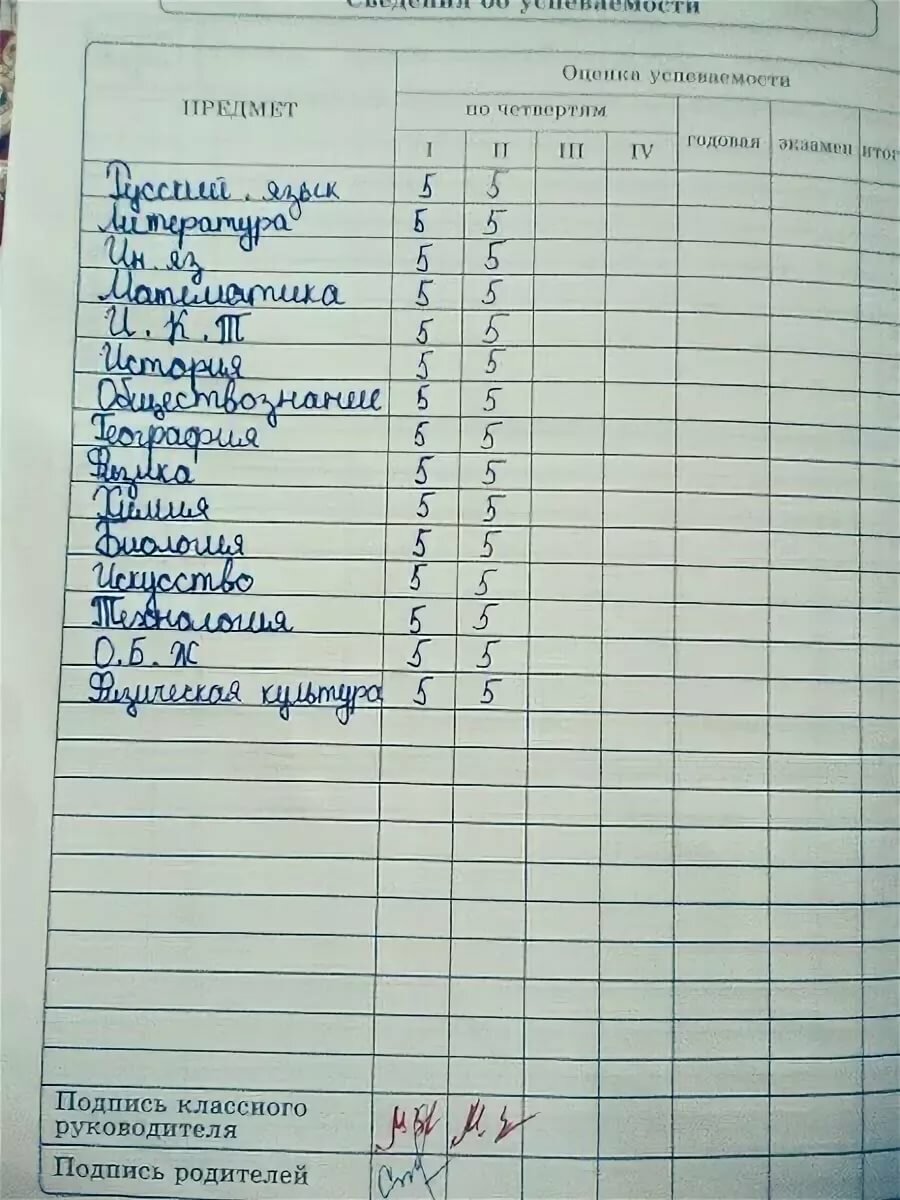 Сведения об успеваемости
ПРЕДМЕТ
Оценка успеваемости
по четвертям
годовая экзамен итог
I II III IV
Русский . язык 5 5
Литература 5 5
Ин. яз 5 5
Математика 5 5
И. К. Т 5 5
История 5 5
Обществознание 5 5
География 5 5
Физика 5 5
Химия 5 5
Биология 5 5
Искусство 5 5
Технология 5 5
О. Б. Ж 5 5
Физическая культура 5 5
Подпись классного
руководителя
Подпись родителей